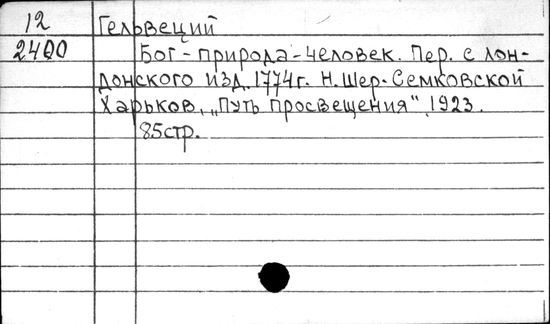 12 Гельвеций
2400 Бог - природа - человек. Пер. с лон-
донского изд. 1774г. Н. Шер-Семковской
Харьков, „Путь просвещения", 1923.
85стр.